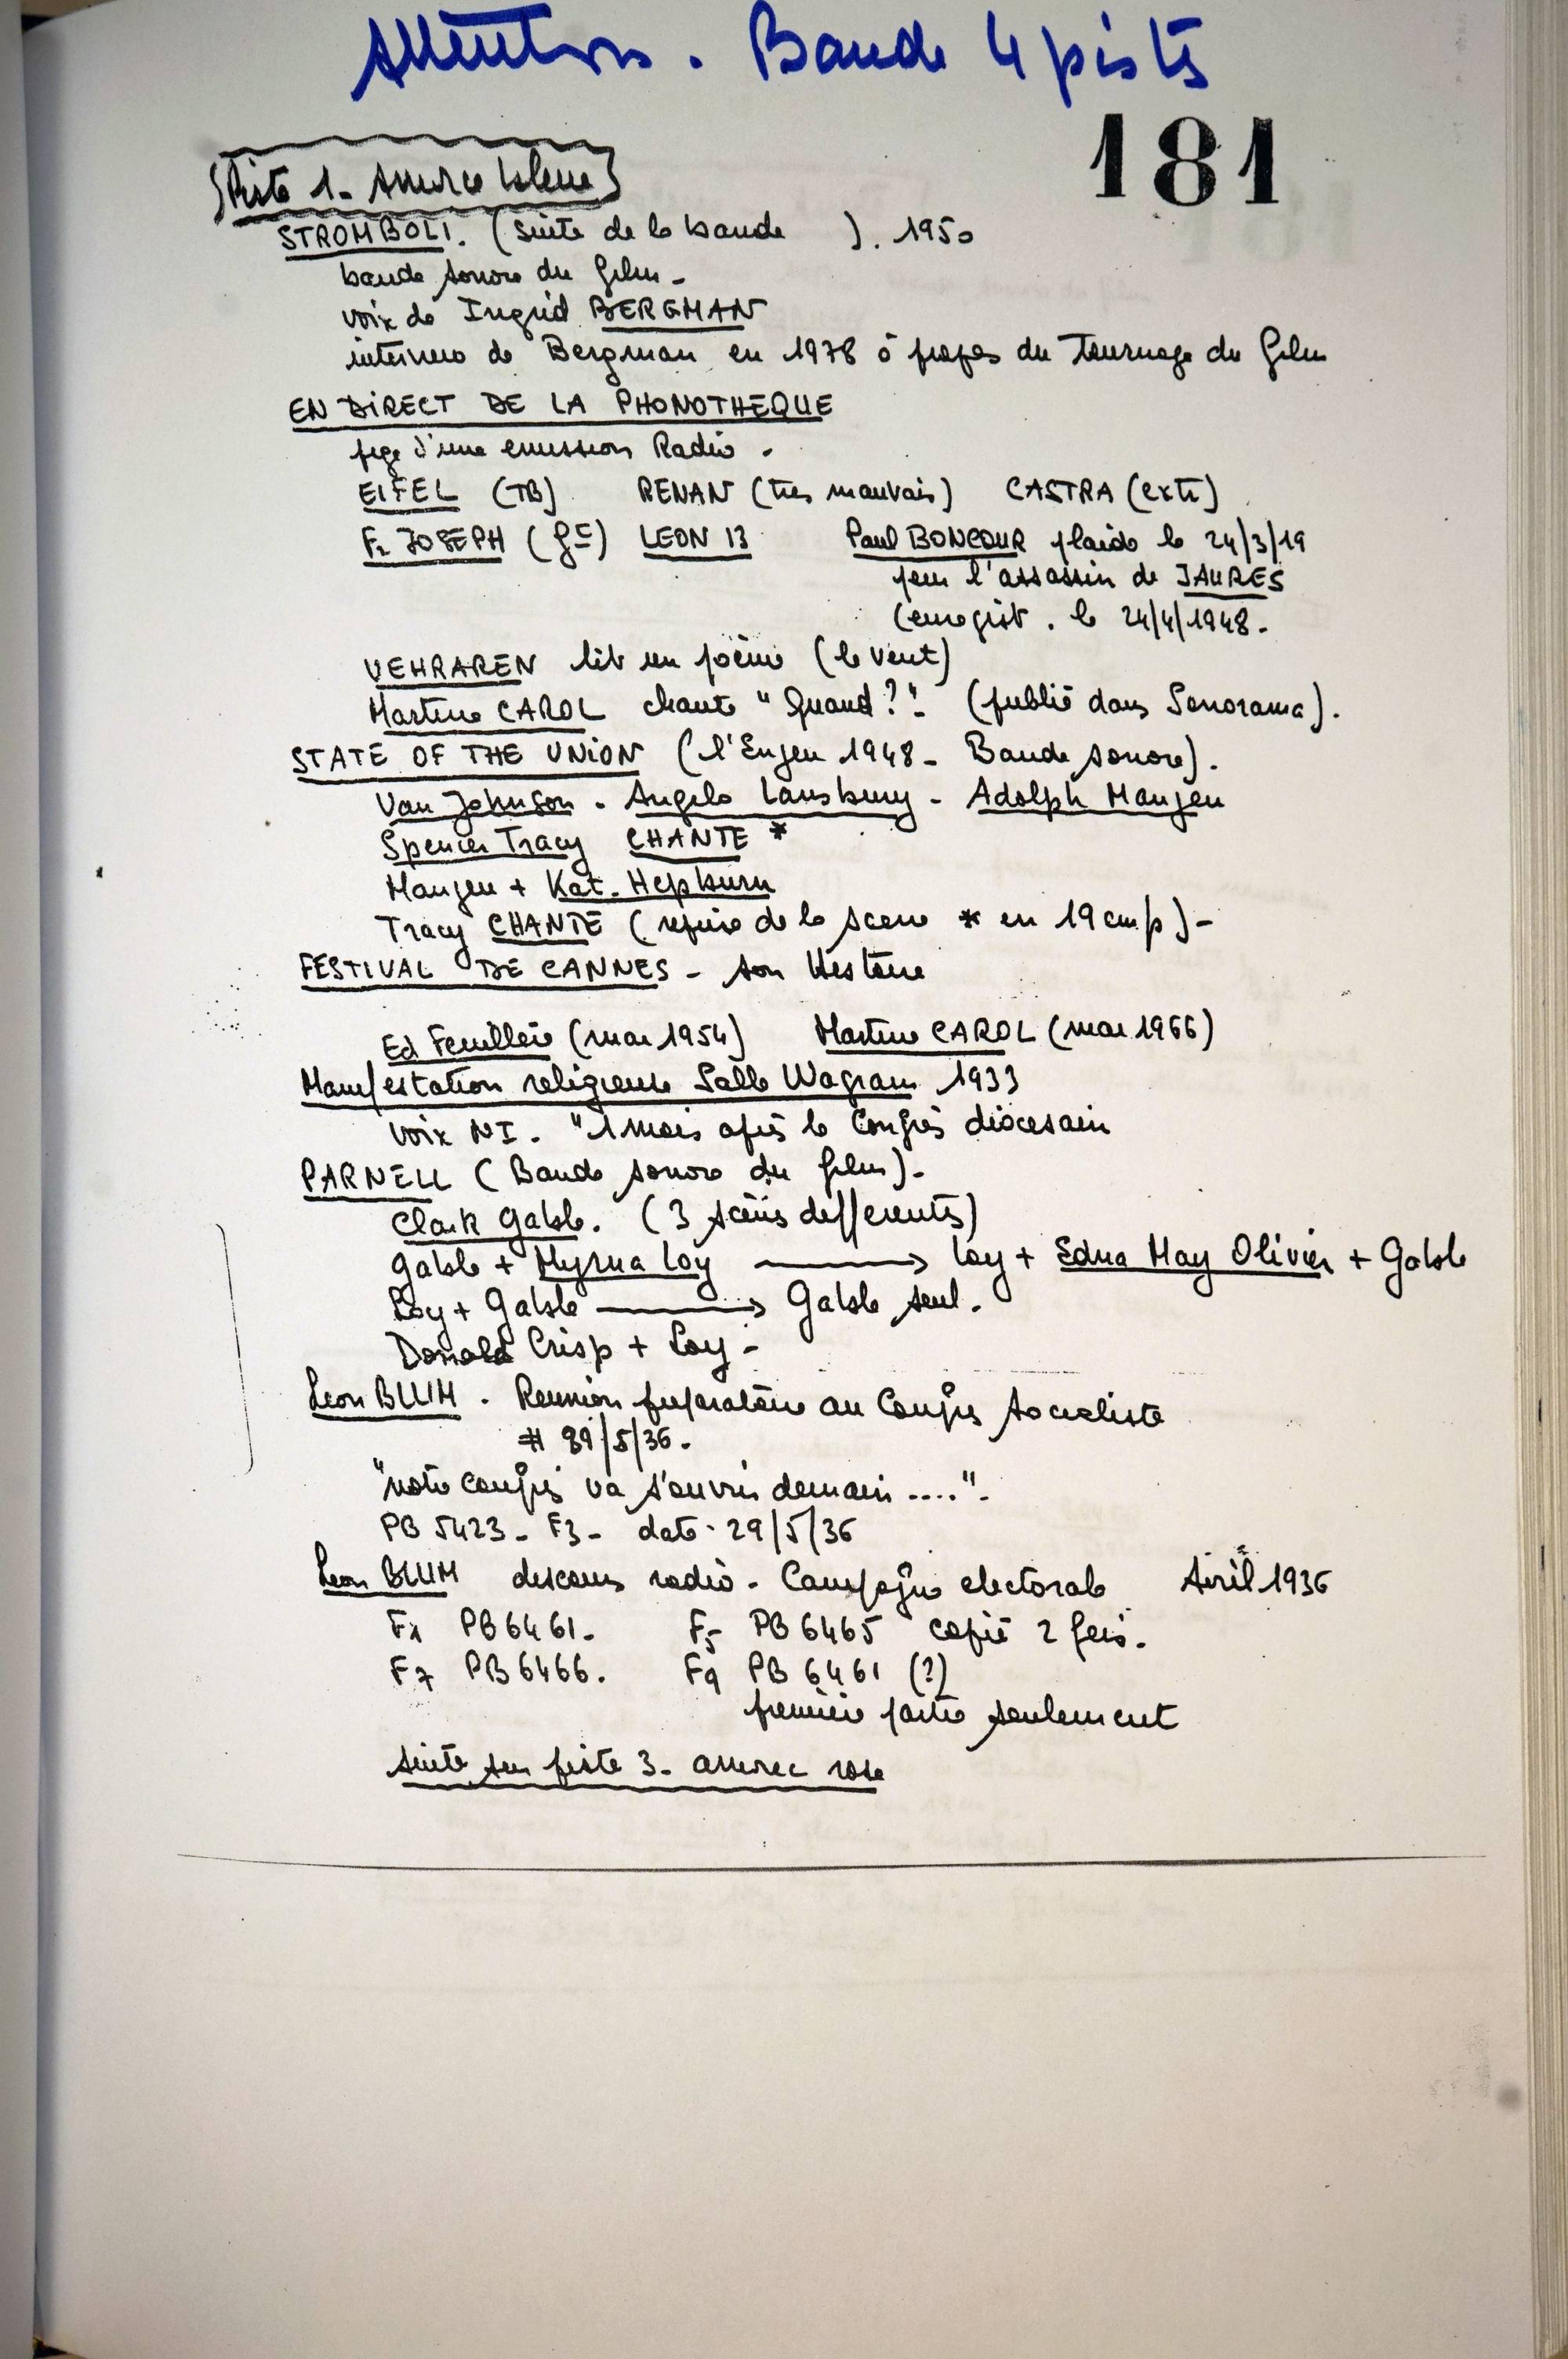 Attention. Bande 4 pistes
181
Piste 1 - amorce bleue
STROMBOLI. (suite de la bande ). 1950
bande sonore du film -
voix de Ingrid BERGMAN
interview de Bergman en 1978 à propos du Tournage du film
EN DIRECT DE LA PHONOTHEQUE
d'une emission Radio.
EIFEL (TB) RENAN (tres mauvais) CASTRA (extr)
Fr JOSEPH ( ) LEON 13 Paul BONCOUR plaide le 24/3/19
pour l'assassin de JAURES
(enregist. le 24/4/1948.
VEHRAREN lit un poème (le vent)
Martine CAROL chante "Quand ?". (publié dans Sonorama).
STATE OF THE UNION (l'Enjeu 1948 - Bande sonore).
Van Johnson. Angela Lansbury - Adolph Manjou
Spencer Tracy CHANTE *
Manjou + Kat. Hepburn
Tracy CHANTE (reprise de la scene * en 19 cm/s) -
FESTIVAL DE CANNES - son Histoire
Ed Feuillère (mai 1954) Martine CAROL (mai 1966)
Manifestation religieuse Salle Wagram 1933
voix NI. "1 mois après le Congrès diocesain
PARNELL (Bande sonore du film).
Clark Gable. (3 scènes differentes)
Gable + Myrna Loy → Loy + Edna May Olivier + Gable
Loy + Gable → Gable seul.
Donald Crisp + Loy -
Leon BLUM. Reunion preparatoire au Congrès Socialiste
# 29/5/36.
"notre congrès va s'ouvrir demain ....".
PB 5423 - F3 - date: 29/5/36
Leon BLUM discours radio - Campagne electorale Avril 1936
F1 PB 6461. F5 PB 6465 copié 2 fois.
F7 PB 6466. F9 PB 6461 (?)
première partie seulement
suite sur piste 3 - amorce rose